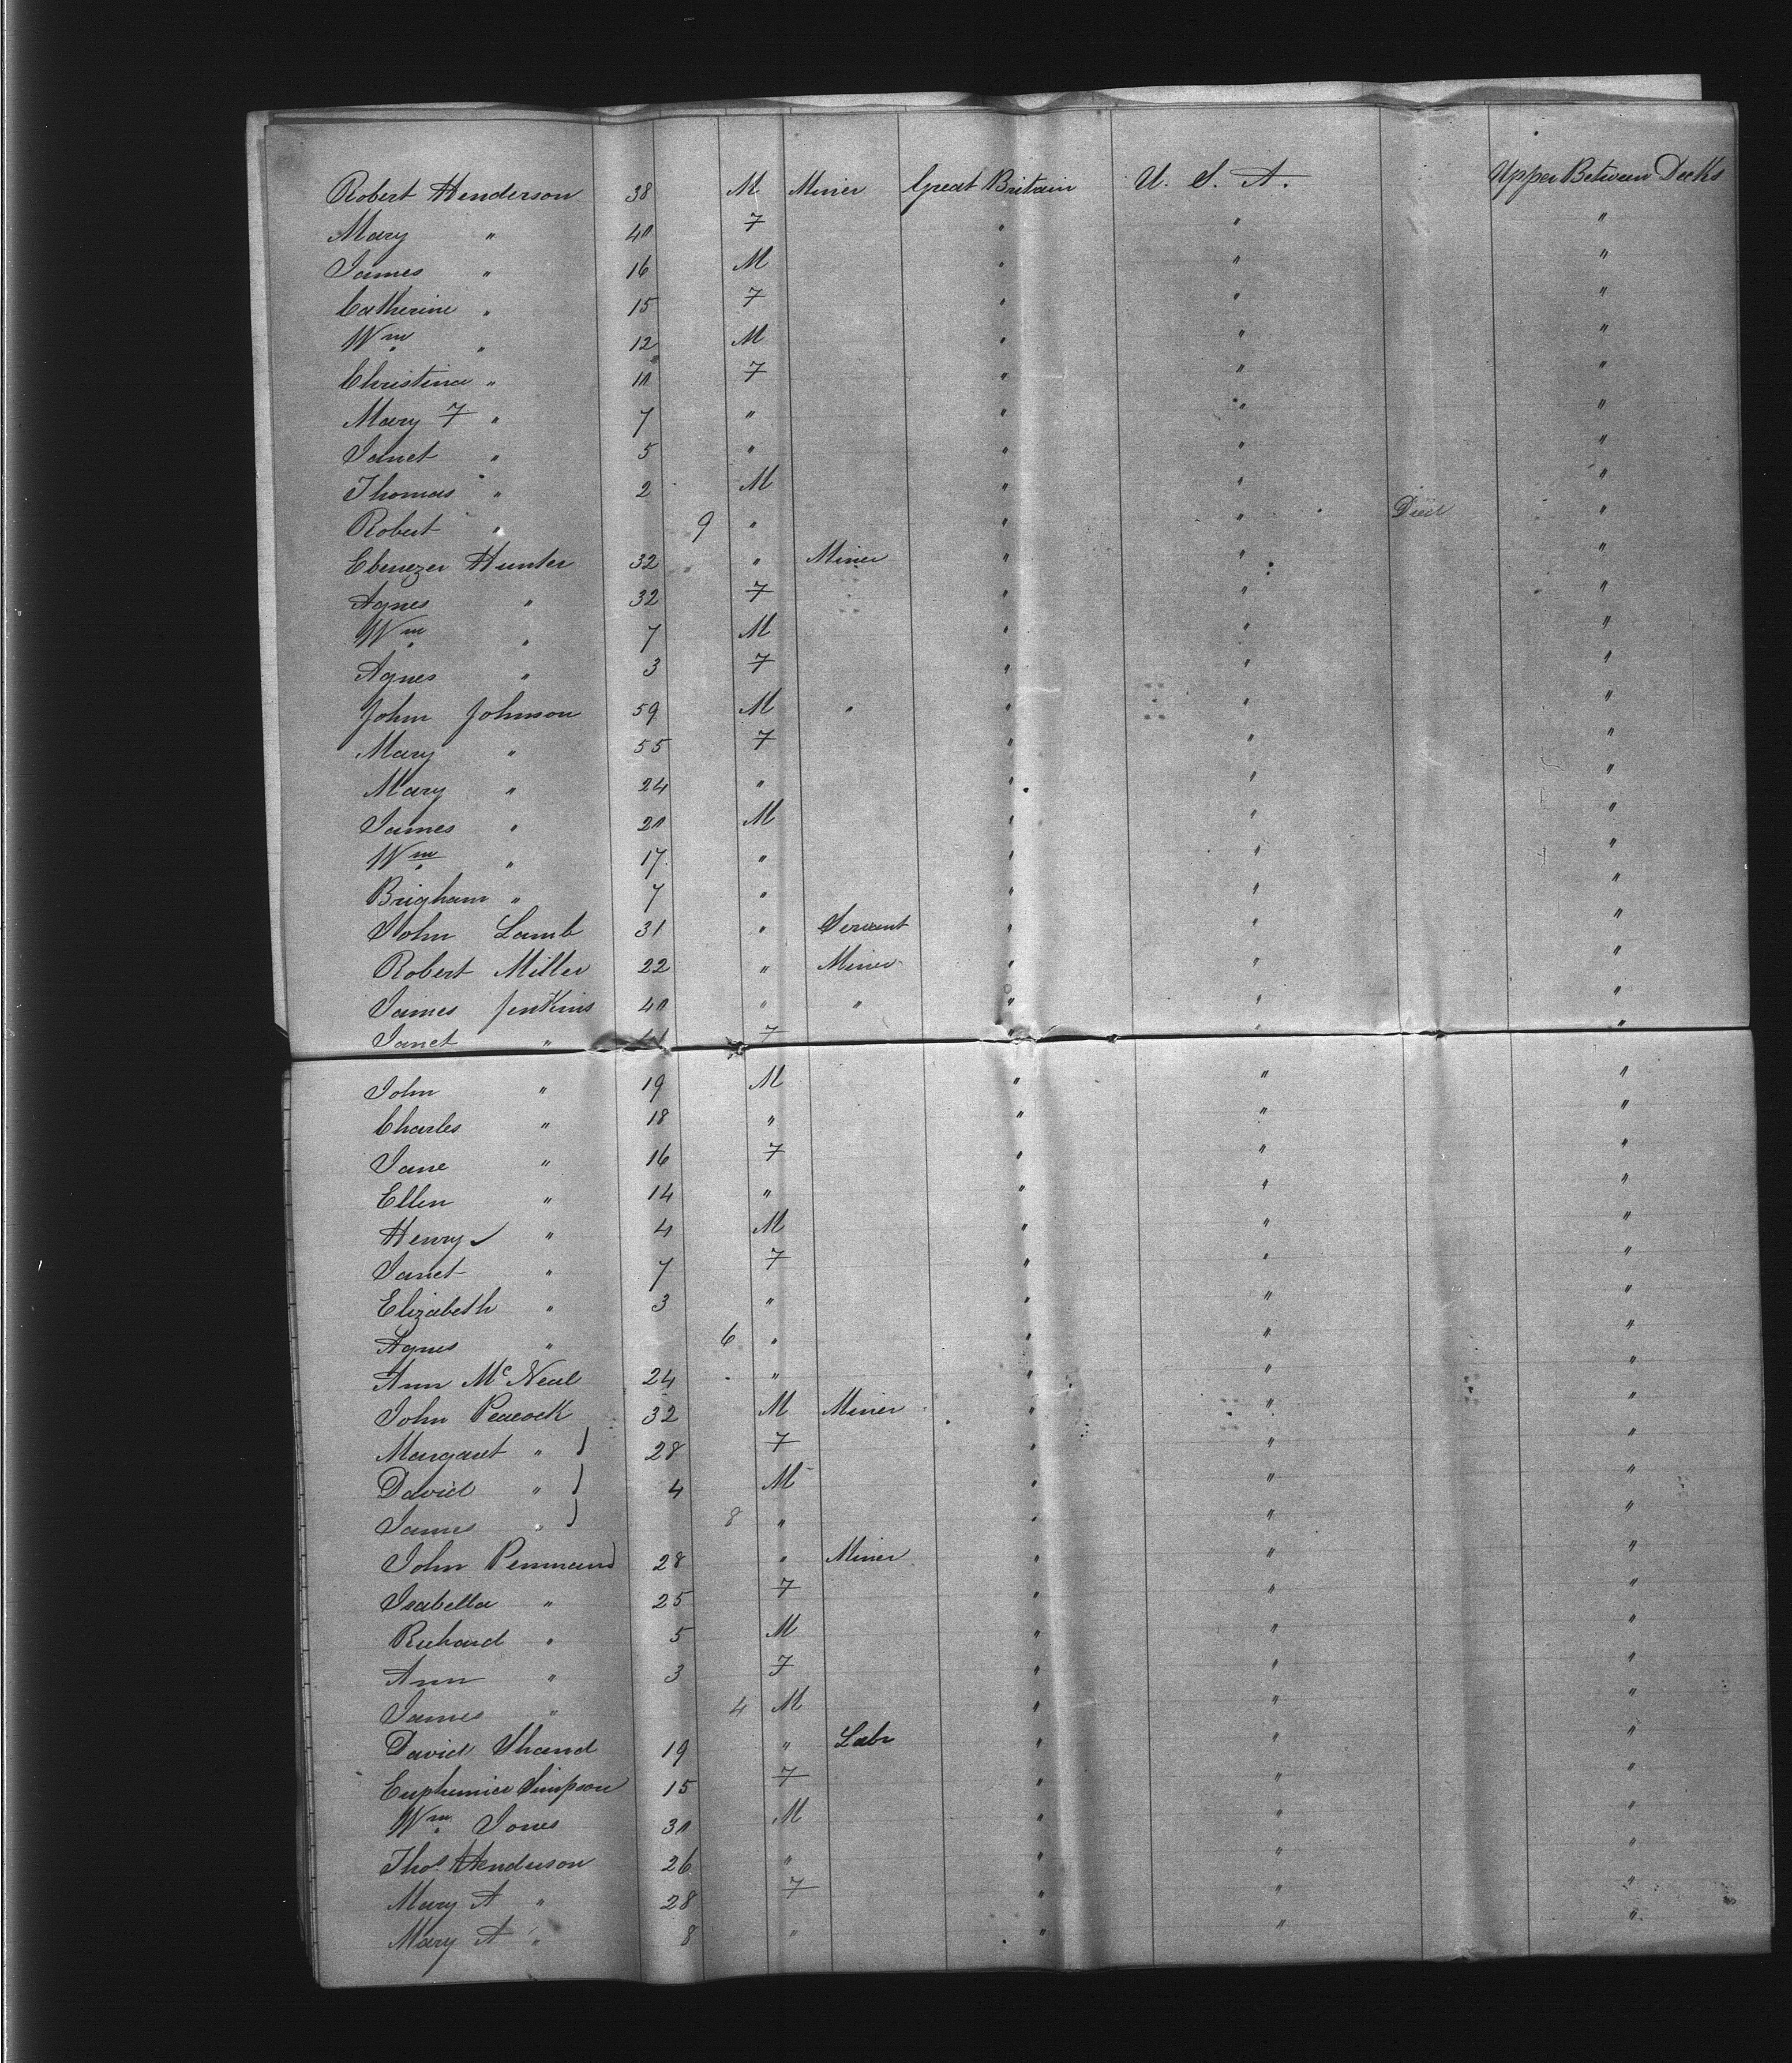 Robert Henderson 38 M Miner Great Britain U. S. A. Upper Between Decks
Mary " 40 F " " "
James " 16 M " " "
Catherine " 15 F " " "
Wm " 12 M " " "
Christina " 10 F " " "
Mary F " 7 " " " "
Janet " 5 " " " "
Thomas " 2 M " " "
Robert " 9 " " " Died "
Ebenezer Hunter 32 " Miner " " "
Agnes " 32 F " " "
Wm " 7 M " " "
Agnes " 3 F " " "
John Johnson 59 M " " " "
Mary " 55 F " " "
Mary " 24 " " " "
James " 20 M " " "
Wm " 17 " " " "
Brigham " 7 " " " "
John Lamb 31 " Servant " " "
Robert Miller 22 " Miner " " "
James Jenkins 40 " " " " "
Janet " F " " "
John " 19 M " " "
Charles " 18 " " " "
Jane " 16 F " " "
Ellen " 14 " " " "
Henry " 4 M " " "
Janet " 7 F " " "
Elizabeth " 3 " " " "
Agnes " 6 " " " "
Ann McNeal 24 " " " "
John Peacock 32 M Miner " " "
Margaret " } 28 F " " "
David " } 4 M " " "
James " } 8 " " " "
John Penmand 28 " Miner " " "
Isabella " 25 F " " "
Richard " 5 M " " "
Ann " 3 F " " "
James " 4 M " " "
David Shand 19 " Labr " " "
Euphemia Simpson 15 F " " "
Wm Jones 30 M " " "
Thos Henderson 26 " " " "
Mary A " 28 F " " "
Mary A " 8 " " " "